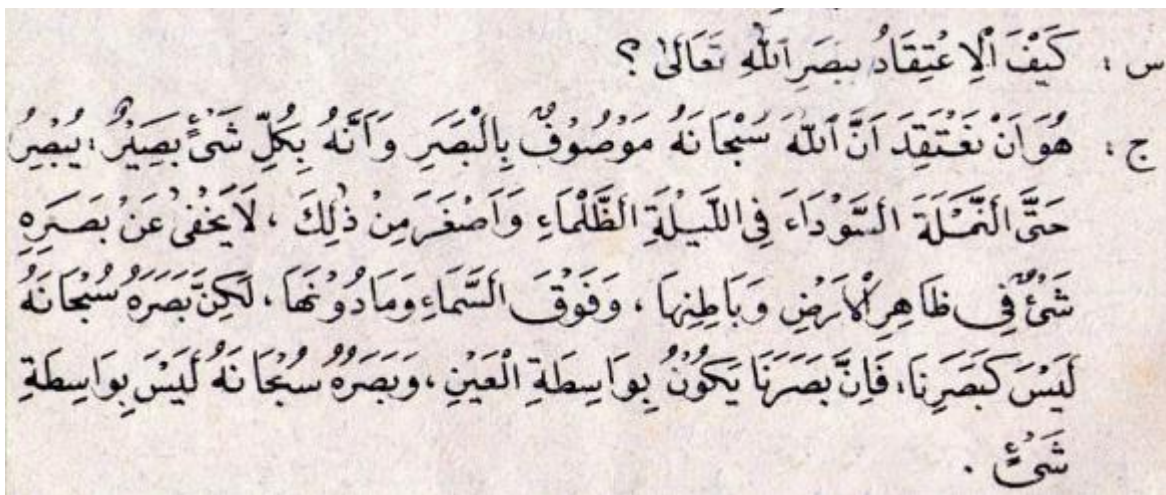 س : كَيْفَ ٱلْاِعْتِقَادُ بِبَصَرِ ٱللهِ تَعَالَىٰ ؟
ج : هُوَ اَنْ نَعْتَقِدَ اَنَّ ٱللهَ سُبْحَانَهُ مَوْصُوْفٌ بِالْبَصَرِ وَاَنَّهُ بِكُلِّ شَىْءٍ بَصِيْرٌ : يُبْصِرُ
حَتَّى ٱلنَّمْلَةَ ٱلسَّوْدَاءَ فِى اللَّيْلَةِ ٱلظَّلْمَاءِ وَاَصْغَرَ مِنْ ذٰلِكَ ، لَا يَخْفٰى عَنْ بَصَرِهِ
شَىْءٌ فِى ظَاهِرِ ٱلْاَرْضِ وَبَاطِنِهَا ، وَفَوْقَ ٱلسَّمَاءِ وَمَا دُوْنَهَا ، لٰكِنَّ بَصَرَهُ سُبْحَانَهُ
لَيْسَ كَبَصَرِنَا ، فَاِنَّ بَصَرَنَا يَكُوْنُ بِوَاسِطَةِ الْعَيْنِ ، وَبَصَرُهُ سُبْحَانَهُ لَيْسَ بِوَاسِطَةِ
شَىْءٍ .